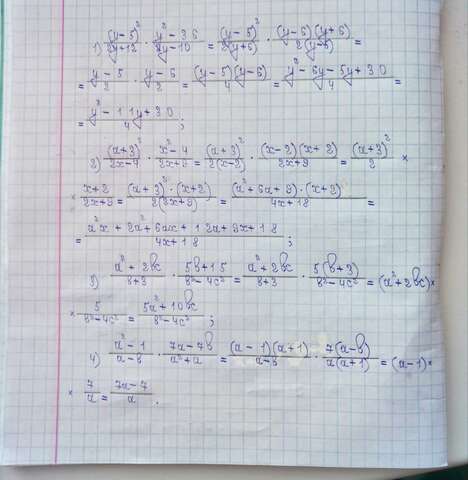 1) (y-5)²/2y+12 · y²-36/2y-10 = (y-5)²/2(y+6) · (y-6)(y+6)/2(y-5) =
= y-5/2 · y-6/2 = (y-5)(y-6)/4 = y²-6y-5y+30/4 =
= y²-11y+30/4 ;
2) (a+3)²/2x-4 · x²-4/2x+9 = (a+3)²/2(x-2) · (x-2)(x+2)/2x+9 = (a+3)²/2 ×
× x+2/2x+9 = (a+3)²·(x+2)/2(2x+9) = (a²+6a+9)·(x+2)/4x+18 =
= a²x+2a²+6ax+12a+9x+18/4x+18 ;
3) a²+2bc/b+3 · 5b+15/b²-4c² = a²+2bc/b+3 · 5(b+3)/b²-4c² = (a²+2bc)×
× 5/b²-4c² = 5a²+10bc/b²-4c² ;
4) a²-1/a-b · 7a-7b/a²+a = (a-1)(a+1)/a-b · 7(a-b)/a(a+1) = (a-1)×
× 7/a = 7a-7/a .